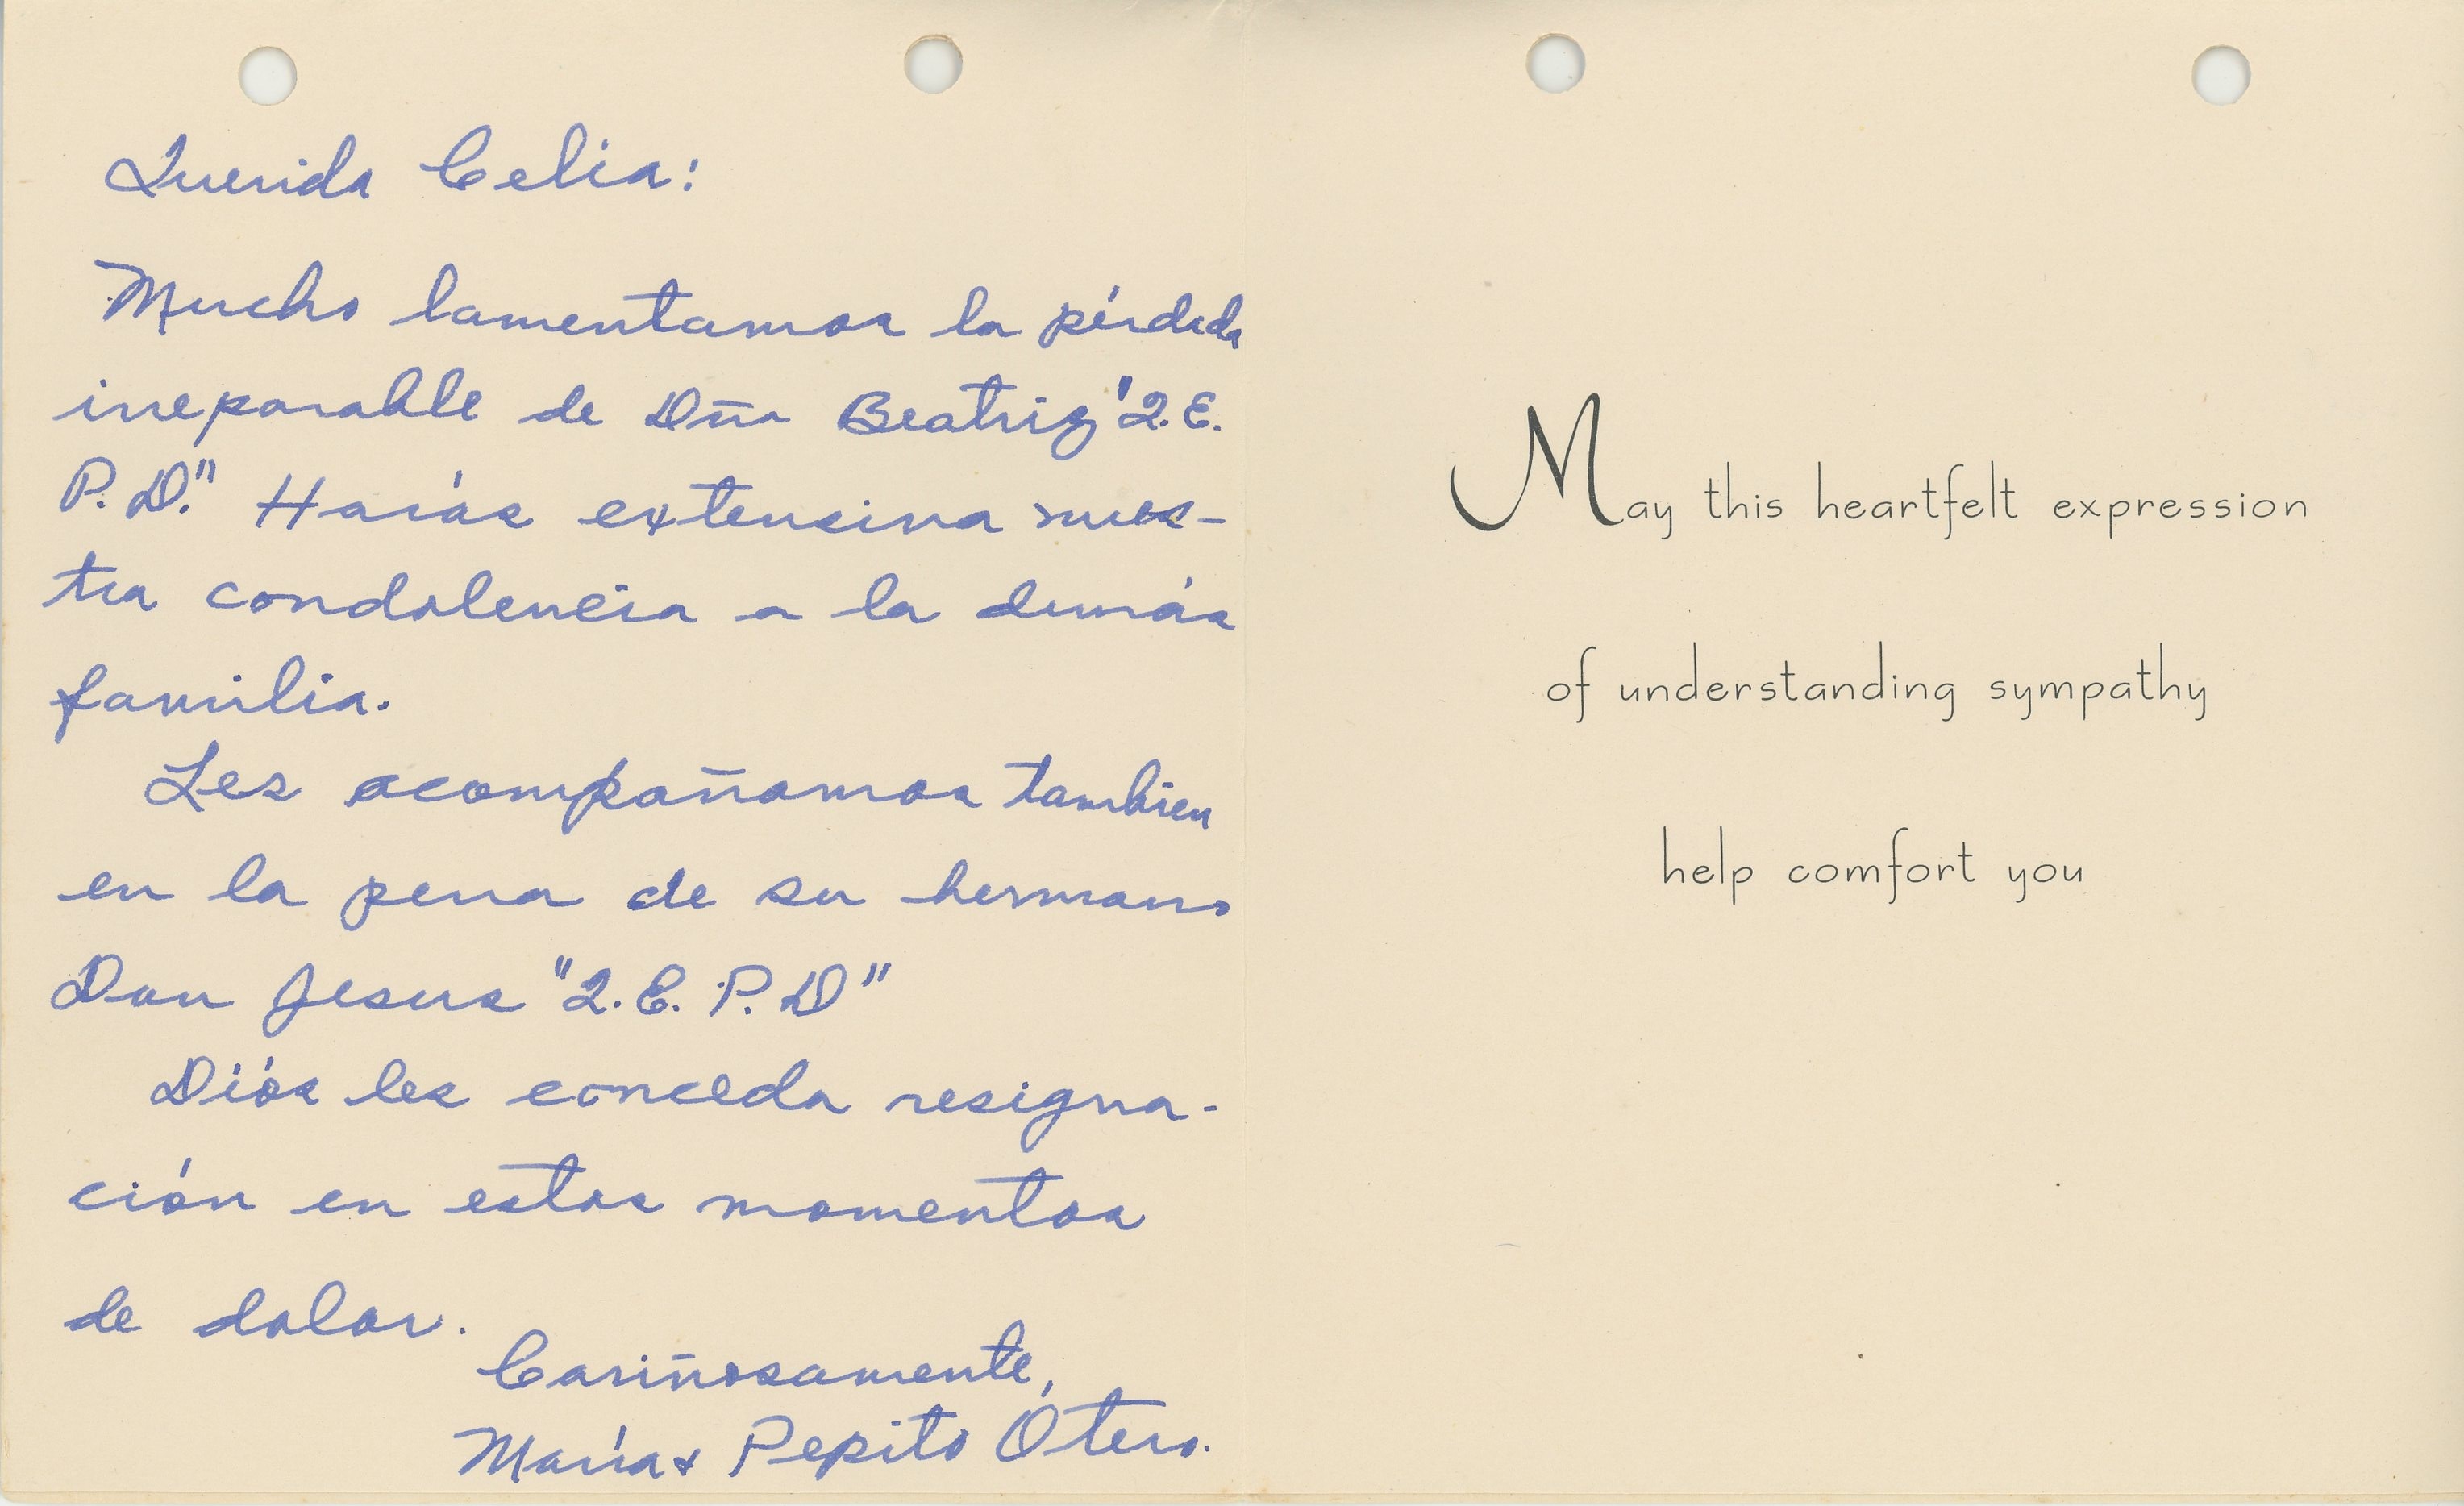 Querida Celia:
Mucho lamentamos la pérdida
irreparable de Dña Beatriz "Q.E.
P.D." Harás extensiva nues-
tra condolencia a la demás
familia.
Les acompañamos tambien
en la pena de su hermano
Don Jesus "Q.E.P.D"
Diós les conceda resigna-
ción en estos momentos
de dolor.
Cariñosamente,
María & Pepito Otero.
May this heartfelt expression
of understanding sympathy
help comfort you